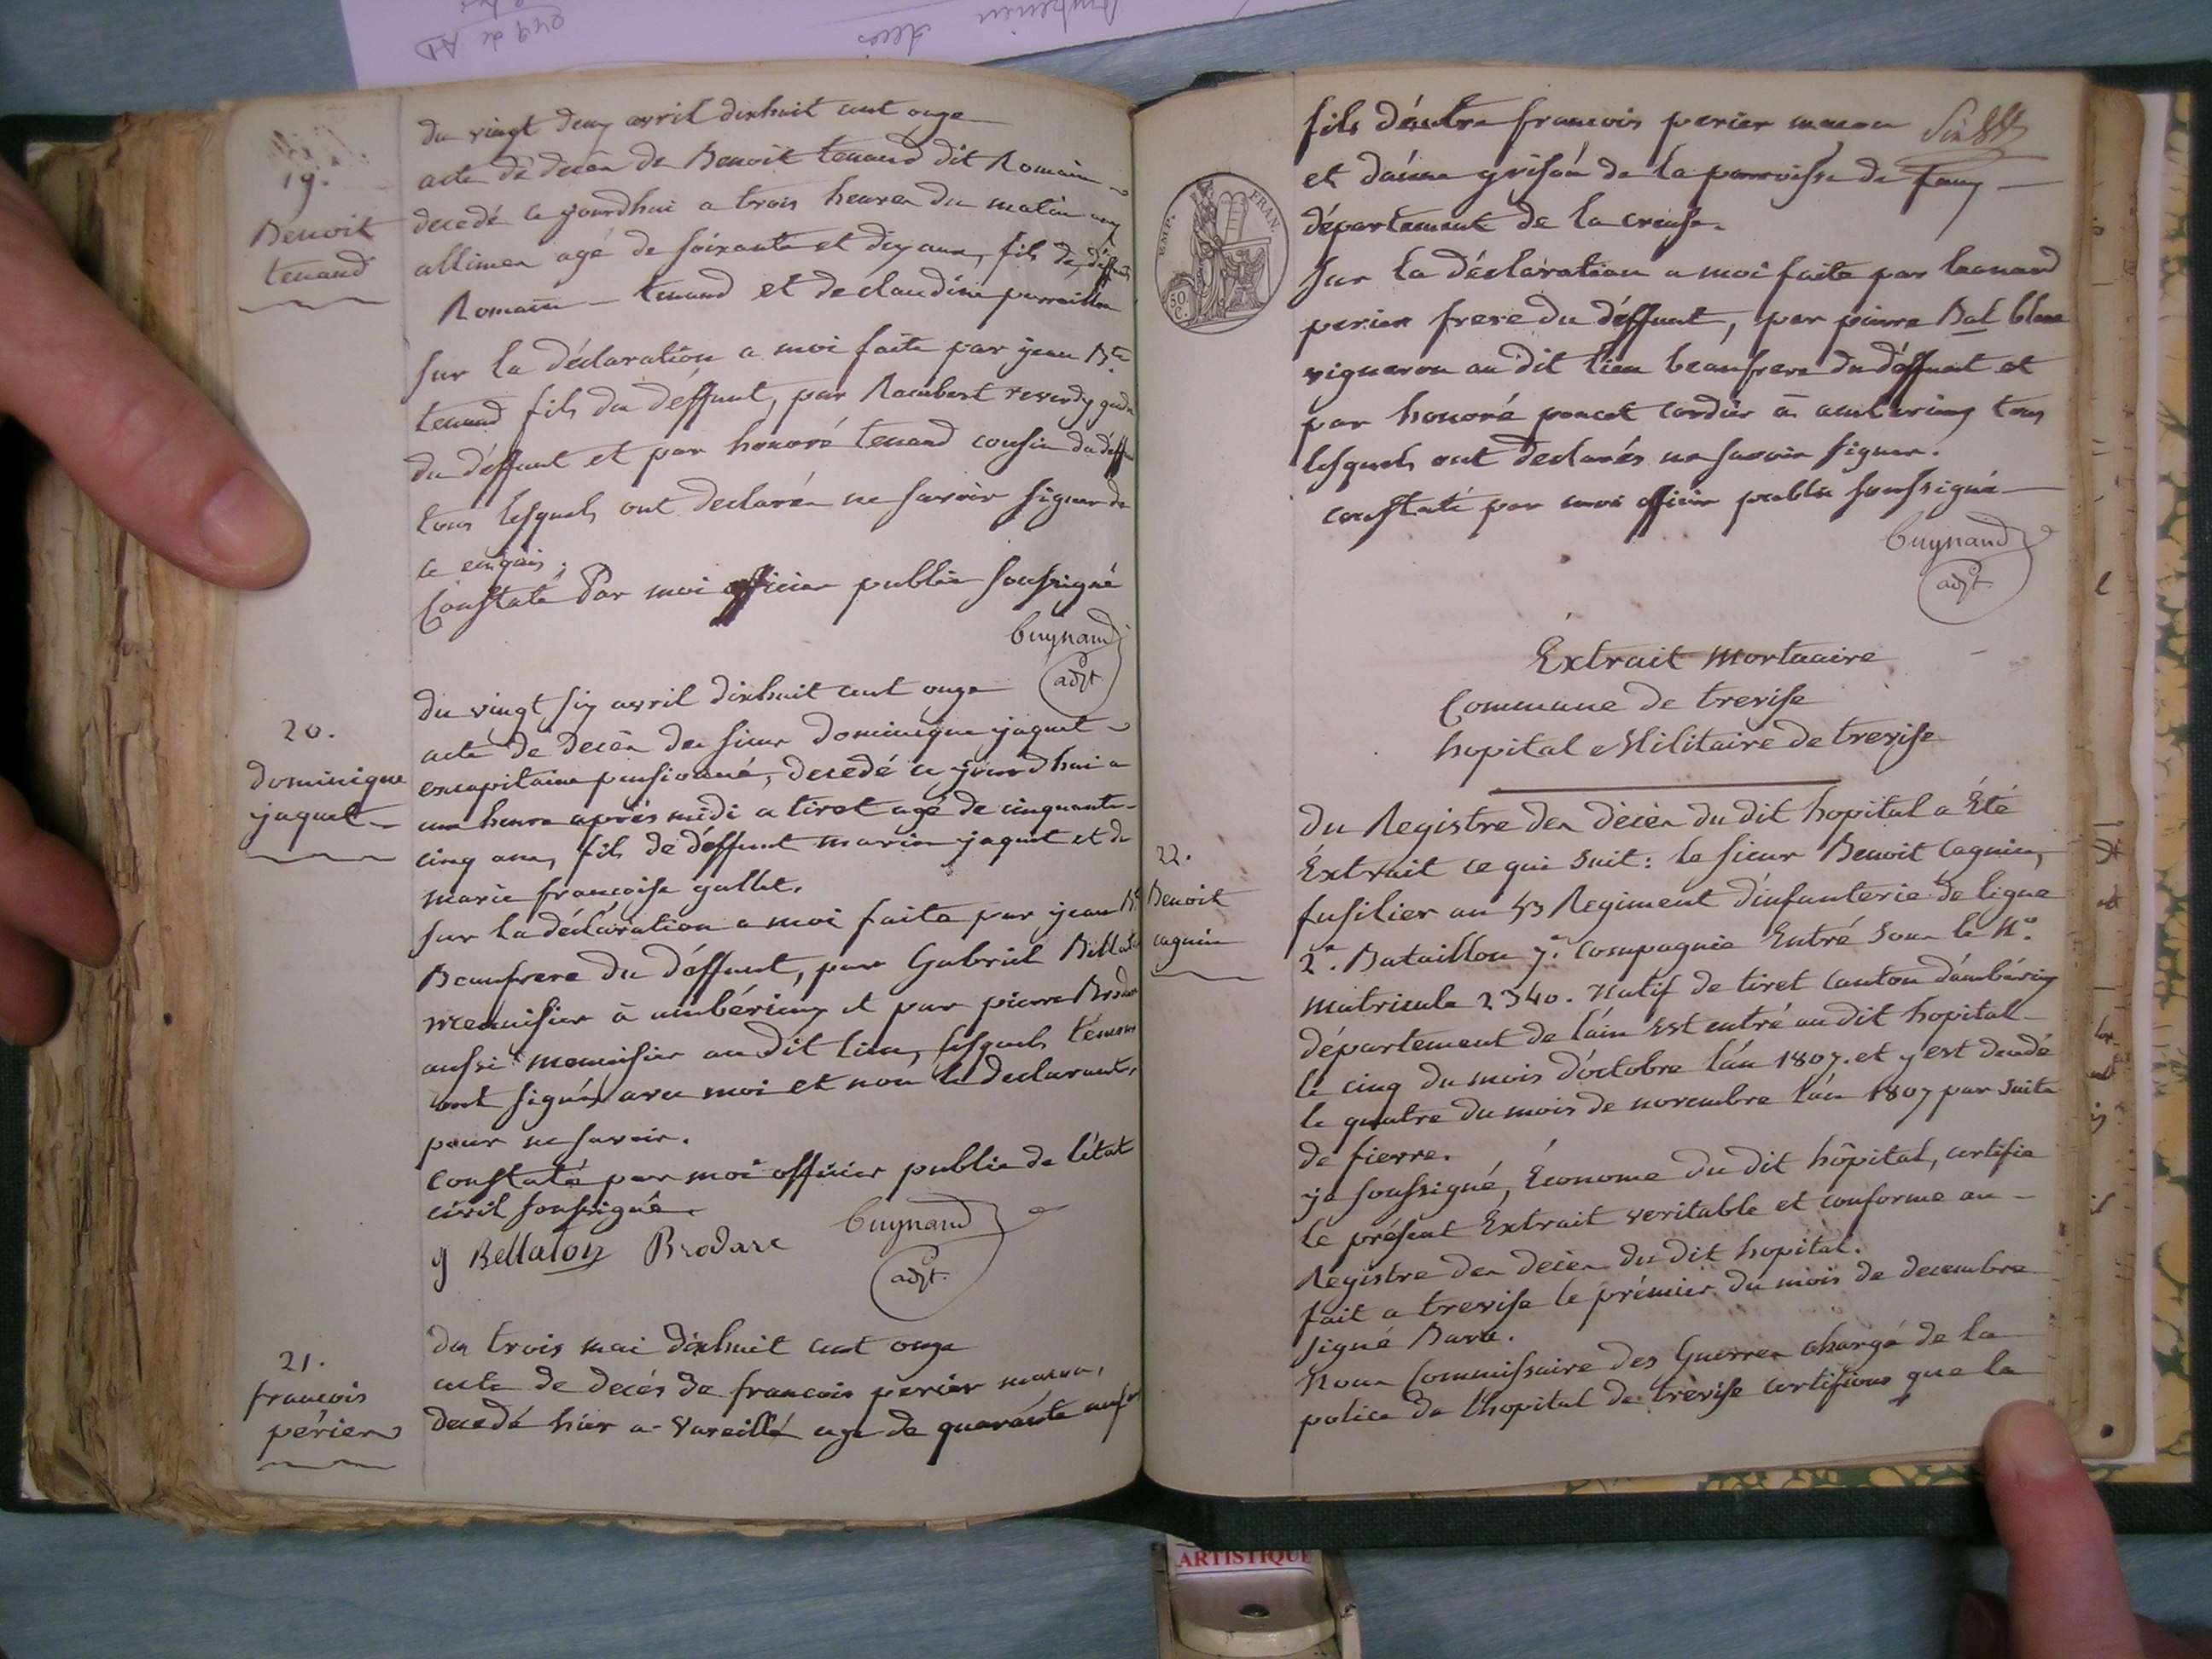 19.
Benoit
tenand
du vingt deux avril dixhuit cent onze
acte de decès de Benoit tenand dit Romain
decedé ce jourdhui a trois heures du matin aux
allimes agé de soixante et dix ans, fils de déffunt
Romain tenand et de claudine
sur la déclaration a moi faite par jean Bte
tenand fils du deffunt, par Rambert reverdy gendre
du déffunt et par honoré tenand cousin du déff
tous lesquels ont declarés ne savoir signer de
ce enquis.
Constaté Par moi officier public soussigné
Guynand
adjt
20.
dominique
jaquet
du vingt six avril dixhuit cent onze
acte de decès du sieur dominique jaquet
excapitaine pensionné, decedé ce jourdhui a
une heure après midi a tiret agé de cinquante
cinq ans, fils de déffunt marin jaquet et de
marie françoise gallet.
sur la déclaration a moi faite par jean Bte
Beaufrere du déffunt, par Gabriel Billat
menuisier à ambérieux et par pierre Brodar
aussi menuisier au dit lieu, lesquels témoins
ont signés avec moi et non le declarant,
pour ne savoir.
Constaté par moi officier public de l'état
civil soussigné.
g Bellaton Brodare Guynand
adjt.
21.
francois
périer
du trois mai dixhuit cent onze
acte de decés de francois perier macon,
decedé hier a Vareille age de quarante ans
fils déntre francois perier macon
et d'anne grisón de la parroisse de
département de la creuse.
sur la déclaration a moi faite par leonard
perier frere du déffunt, par pierre Bal blanc
vigneron au dit lieu beaufrere du déffunt et
par honoré poncet cordier à ambérieux tous
lesquels ont declarés ne savoir signer.
constaté par moi officier public soussigné
Guynand
adjt.
EMP. FRAN.
50 C.
Extrait Mortuaire
Commune de trevise
hopital Militaire de trevise
22.
Benoit
cagnin
du Registre des décès du dit hopital a Eté
Extrait ce qui suit: le sieur Benoit Cagnin,
fusilier au 53 Regiment d'infanterie de ligne
2e. Bataillon 7e. Compagnie Entré sous le No.
matricule 2340. Natif de tiret canton d'ambérieux
département de l'ain Est entré au dit hopital
le cinq du mois d'octobre l'an 1807. et y est decedé
le quatre du mois de novembre l'an 1807 par suite
de fievre.
je soussigné, Econome du dit hôpital, certifie
le présent Extrait veritable et conforme au
Registre des decès du dit hopital.
fait a trevise le prémier du mois de decembre
signé Bara.
Nous Commissaire des Guerres chargé de la
police de l'hopital de trevise certifions que la
ARTISTIQUE